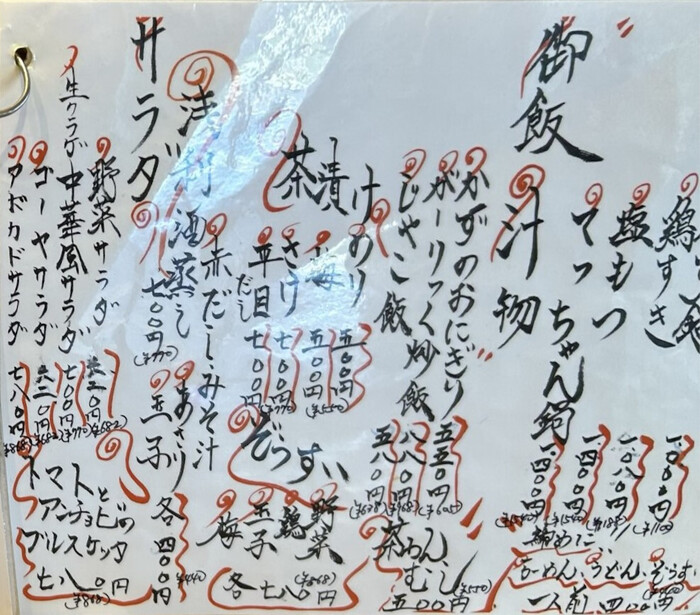 鶏すき
一、〇〇〇円
(¥1100)
塩もつ
一、〇八〇円
てっちゃん鍋
一、四〇〇円
(¥1540)
一、四〇〇円
(¥1540)
らーめん、うどん、ぞうす
一人前 四〇〇円
御飯
汁物
かずのおにぎり
五五〇円
(¥605)
がーりっく炒飯
八八〇円
(¥968)
じゃこ飯
五八〇円
(¥638)
茶わんむし
(¥550)
五〇〇円
茶漬け
のり
五〇〇円
(¥550)
梅
五〇〇円
さけ
七〇〇円
(¥770)
平目だし
七〇〇円
ぞうすい
野菜
鶏
玉子
梅
各七八〇円
(¥868)
浅利酒蒸し
七〇〇円
(¥770)
赤だし、みそ汁
あさり
玉子
各四〇〇円
(¥440)
サラダ
野菜サラダ
六二〇円
(¥682)
生クラゲ中華風サラダ
七〇〇円
(¥770)
ゴーヤサラダ
六二〇円
(¥682)
アボカドサラダ
七八〇円
(¥868)
トマトと
アンチョビの
ブルスケッタ
七八〇円
(¥868)